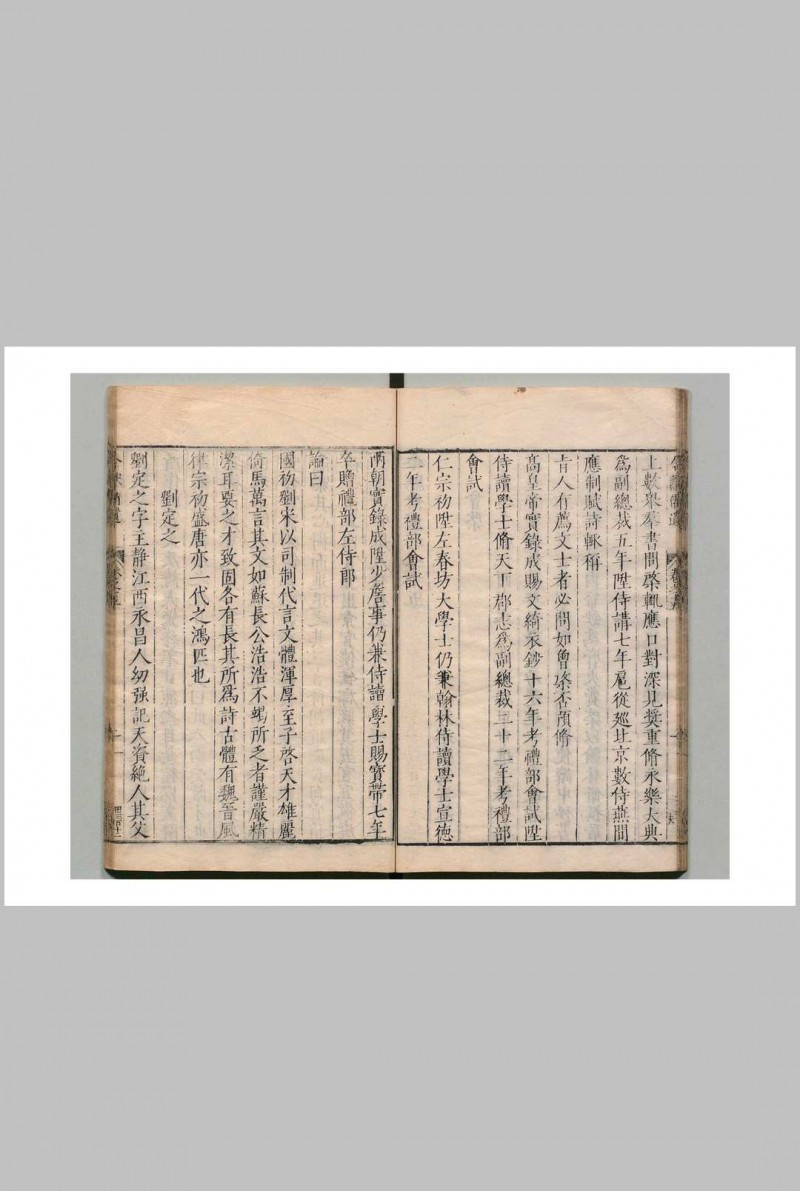 上數舉羣書問棨輒應口對深見奬重脩永樂大典
爲副總裁五年陞侍講七年扈從廵北京數侍燕間
應制賦詩輒稱
旨人有薦文士者必問如曾棨否預脩
高皇帝實錄成賜文綺衣鈔十六年考禮部會試陞
侍讀學士脩天下郡志爲副總裁二十二年考禮部
會試
仁宗初陞左春坊大學士仍兼翰林侍讀學士宣德
二年考禮部會試
兩朝實錄成陞少詹事仍兼侍讀學士賜寶帶七年
卒贈禮部左侍郎
論曰
國初劉宋以司制代言文體渾厚至子啓天才雄麗
倚馬萬言其文如蘇長公浩浩不竭所乏者謹嚴精
潔耳要之才致固各有長其所爲詩古體有魏晉風
律宗初盛唐亦一代之鴻匹也
劉定之
劉定之字主静江西永昌人幼强記天資絶人其父